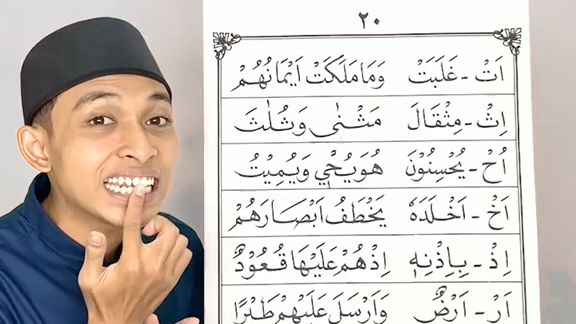 ٢٠
اَتْ - غَلَبَتْ وَمَا مَلَكَتْ اَيْمَانُهُمْ
اِثْ - مِثْقَالَ مَثْنٰى وَثُلٰثَ
اُحْ - يُحْسِنُوْنَ هُوَ يُحْيٖ وَيُمِيْتُ
اَخْ - اَخْلَدَهٗ يَخْطَفُ اَبْصَارَهُمْ
اِذْ - بِاِذْنِهٖ اِذْهُمْ عَلَيْهَا قُعُوْدٌ
اَرْ - اَرْضٌ وَاَرْسَلَ عَلَيْهِمْ طَيْرًا